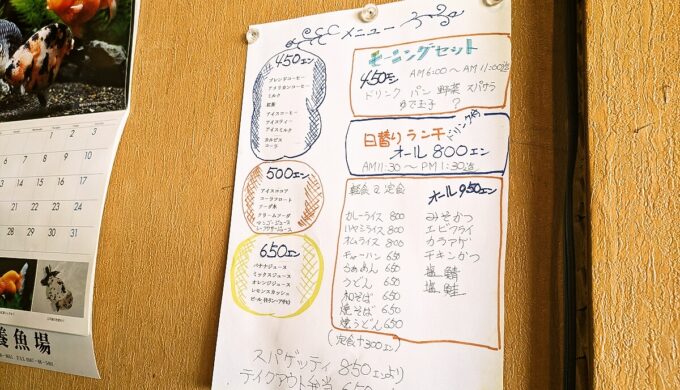 メニュー
450エン
ブレンドコーヒー
アメリカンコーヒー
ミルク
紅茶
アイスコーヒー
アイスティー
アイスミルク
カルピス
コーラ
500エン
アイスココア
コーラフロート
ソーダ水
クリームソーダ
マンゴージュース
650エン
バナナジュース
ミックスジュース
オレンジジュース
レモンスカッシュ
モーニングセット
450エン AM6:00〜AM11:00迄
ドリンク パン 野菜 スパサラ
ゆで玉子 ?
日替りランチ ドリンク付
オール 800エン
AM11:30〜PM1:30迄
軽食 定食 オール950エン
カレーライス 800
ハヤシライス 800
オムライス 800
チャーハン 650
うどん 650
和そば 650
焼そば 650
焼うどん 650
(定食+300エン)
みそかつ
エビフライ
カラアゲ
チキンかつ
塩鯖
塩鮭
スパゲッティ 850エンより
テイクアウト弁当 650
3 4 5 6 7 8 9 10
13 14 15 16 17
20 21 22 23 24
27 28 29 30 31
養魚場